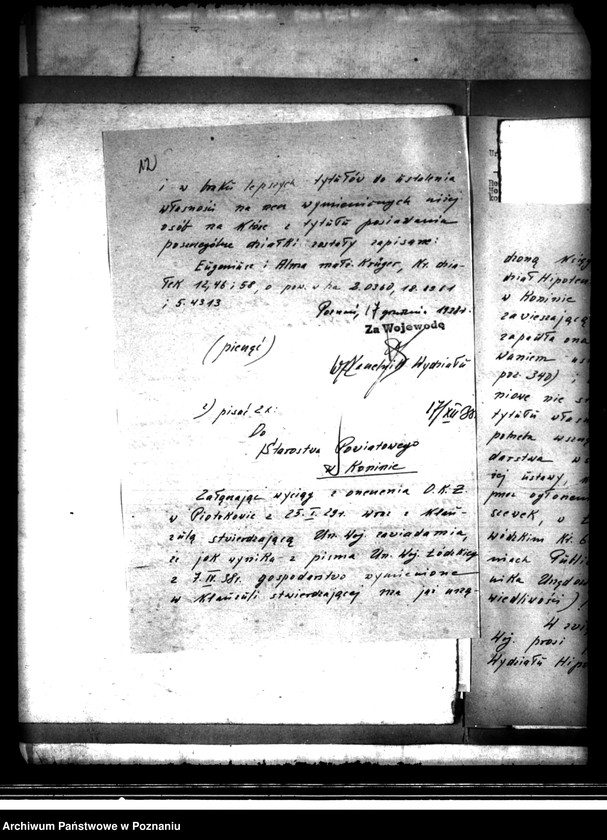 i w braku lepszych tytułów do ustalenia
własności na rzecz wymienionych niżej
osób na które z tytułu posiadania
poszczególne działki zostały zapisane:
Eugeniusz i Alma małż. Krüger, Nr. dzia-
łek 12, 46 i 58, o pow. w ha 2.0360, 10.1301
i 5.4313
Poznań, 17 grudnia 1938 r.
Za Wojewodę
(pieczęć)
Naczelnik Wydziału
2) pisać 2x:
17/XII 38
Do
Starostwa Powiatowego
w Koninie
Załączając wyciąg z orzeczenia O.K.Z.
w Piotrkowie z 25.I.29 r. wraz z klau-
zulą stwierdzającą Urz. Woj. zawiadamia,
że jak wynika z pisma Urz. Woj. Łódzkiego
z 7.IV.38 r. gospodarstwo wymienione
w klauzuli stwierdzającej ma już urzą-
dzoną księg
dział Hipotec
w Koninie
zawieszającą
zapadła ona
waniem
poz. 340) i
niowe nie
tytułu włas
potrzeba
darstwa
rej ustawy,
przez ogłoszen
wódzkim Nr. 6
niach Publi
nika Urzędow
wiedliwości)
W zwi
Woj. prosi
Wydziału Hipo
Archiwum Państwowe w Poznaniu